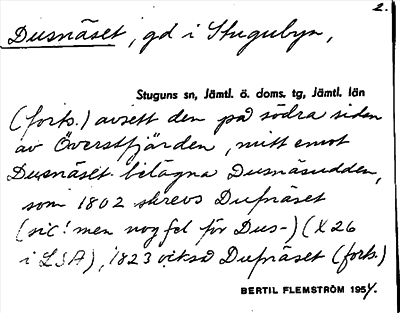 2.
Dusnäset, gd i Stugubyn,
Stuguns sn, Jämtl. ö. doms. tg, Jämtl. län
(forts.) avsett den på södra sidan
av Överstfjärden, mitt emot
Dusnäset belägna Dusnäsudden,
som 1802 skrevs Dufnäset
(sic! men nog fel för Dus-) (X26
i LSA), 1823 också Dufnäset (forts.)
BERTIL FLEMSTRÖM 195